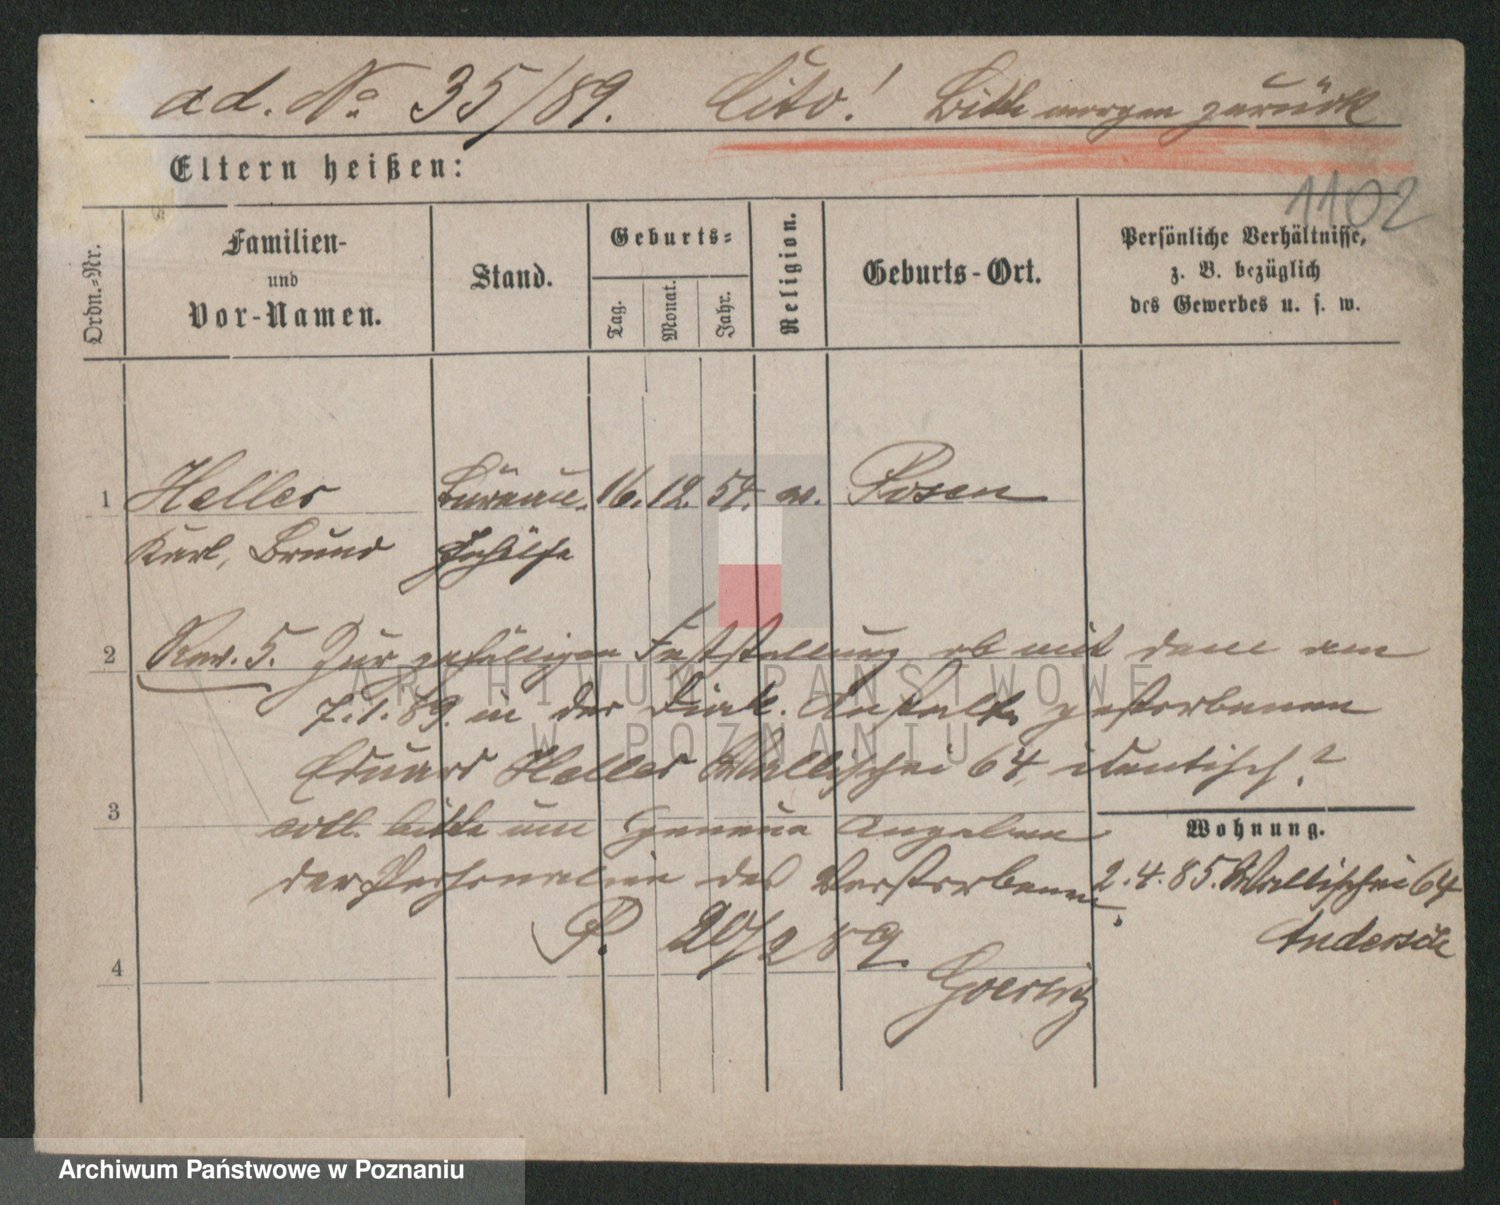 ad. No 35/89. Cito! Bitte morgen zurück
Eltern heißen:
1102
Ordn.-Nr.
Familien-
und
Vor-Namen.
Stand.
Geburts-
Tag.
Monat.
Jahr.
Religion.
Geburts-Ort.
Persönliche Verhältnisse,
z. B. bezüglich
des Gewerbes u. s. w.
1 Heller Büreau- 16. 12. 54. Posen
Karl, Bruno Gehülfe
2 Rev. 5. Zur gefälligen Feststellung ob mit dem am
7. 1. 89. in der Diak. Anstalt gestorbenen
Eduard Heller Wallischei 64 identisch?
3 evtl. bitte um genaue Angaben
der Personalien des Verstorbenen.
P. 20/2 89.
Goerlitz
4
Wohnung.
2. 4. 85. Wallischei 64
ARCHIWUM PAŃSTWOWE
W POZNANIU
Archiwum Państwowe w Poznaniu